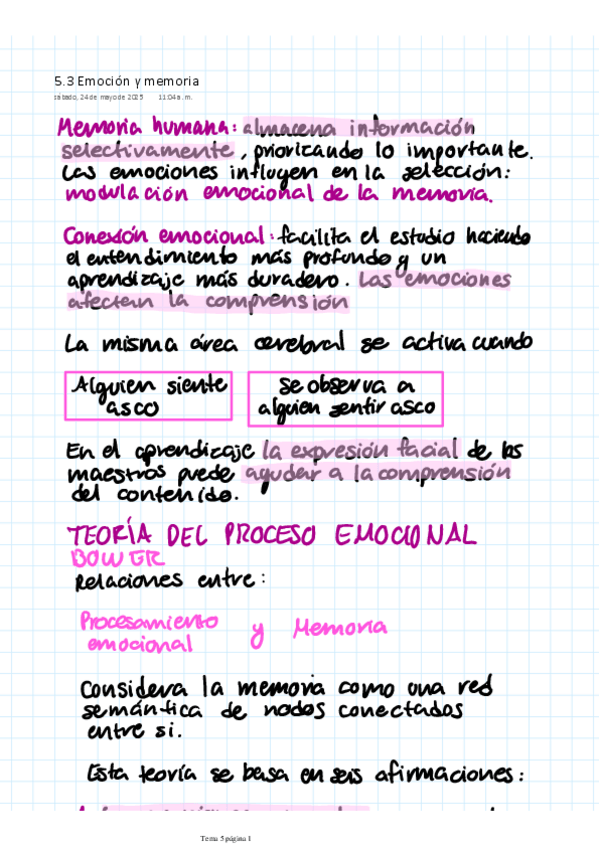 5.3 Emoción y memoria
sábado, 24 de mayo de 2025 11:04 a. m.
Memoria humana: almacena información
selectivamente, priorizando lo importante.
Las emociones influyen en la selección:
modulación emocional de la memoria.
Conexión emocional: facilita el estudio haciendo
el entendimiento más profundo y un
aprendizaje más duradero. Las emociones
afectan la comprensión
La misma área cerebral se activa cuando
Alguien siente
asco
Se observa a
alguien sentir asco
En el aprendizaje la expresión facial de los
maestros puede ayudar a la comprensión
del contenido.
TEORÍA DEL PROCESO EMOCIONAL
BOWER
Relaciones entre:
Procesamiento
emocional y Memoria
Considera la memoria como una red
semántica de nodos conectados
entre si.
Esta teoría se basa en seis afirmaciones:
Tema 5 página 1